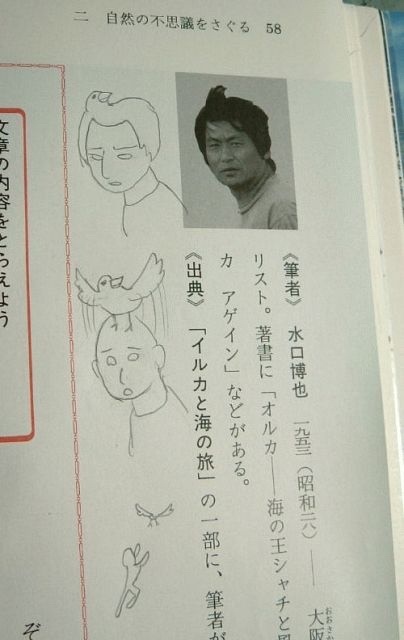 二　自然の不思議をさぐる　58
《筆者》　水口博也　一九五三（昭和二八）――　大阪
おおさか
リスト。著書に「オルカ――海の王シャチと
カ　アゲイン」などがある。
《出典》　「イルカと海の旅」の一部に、筆者が
文章の内容をとらえよう
ぞ